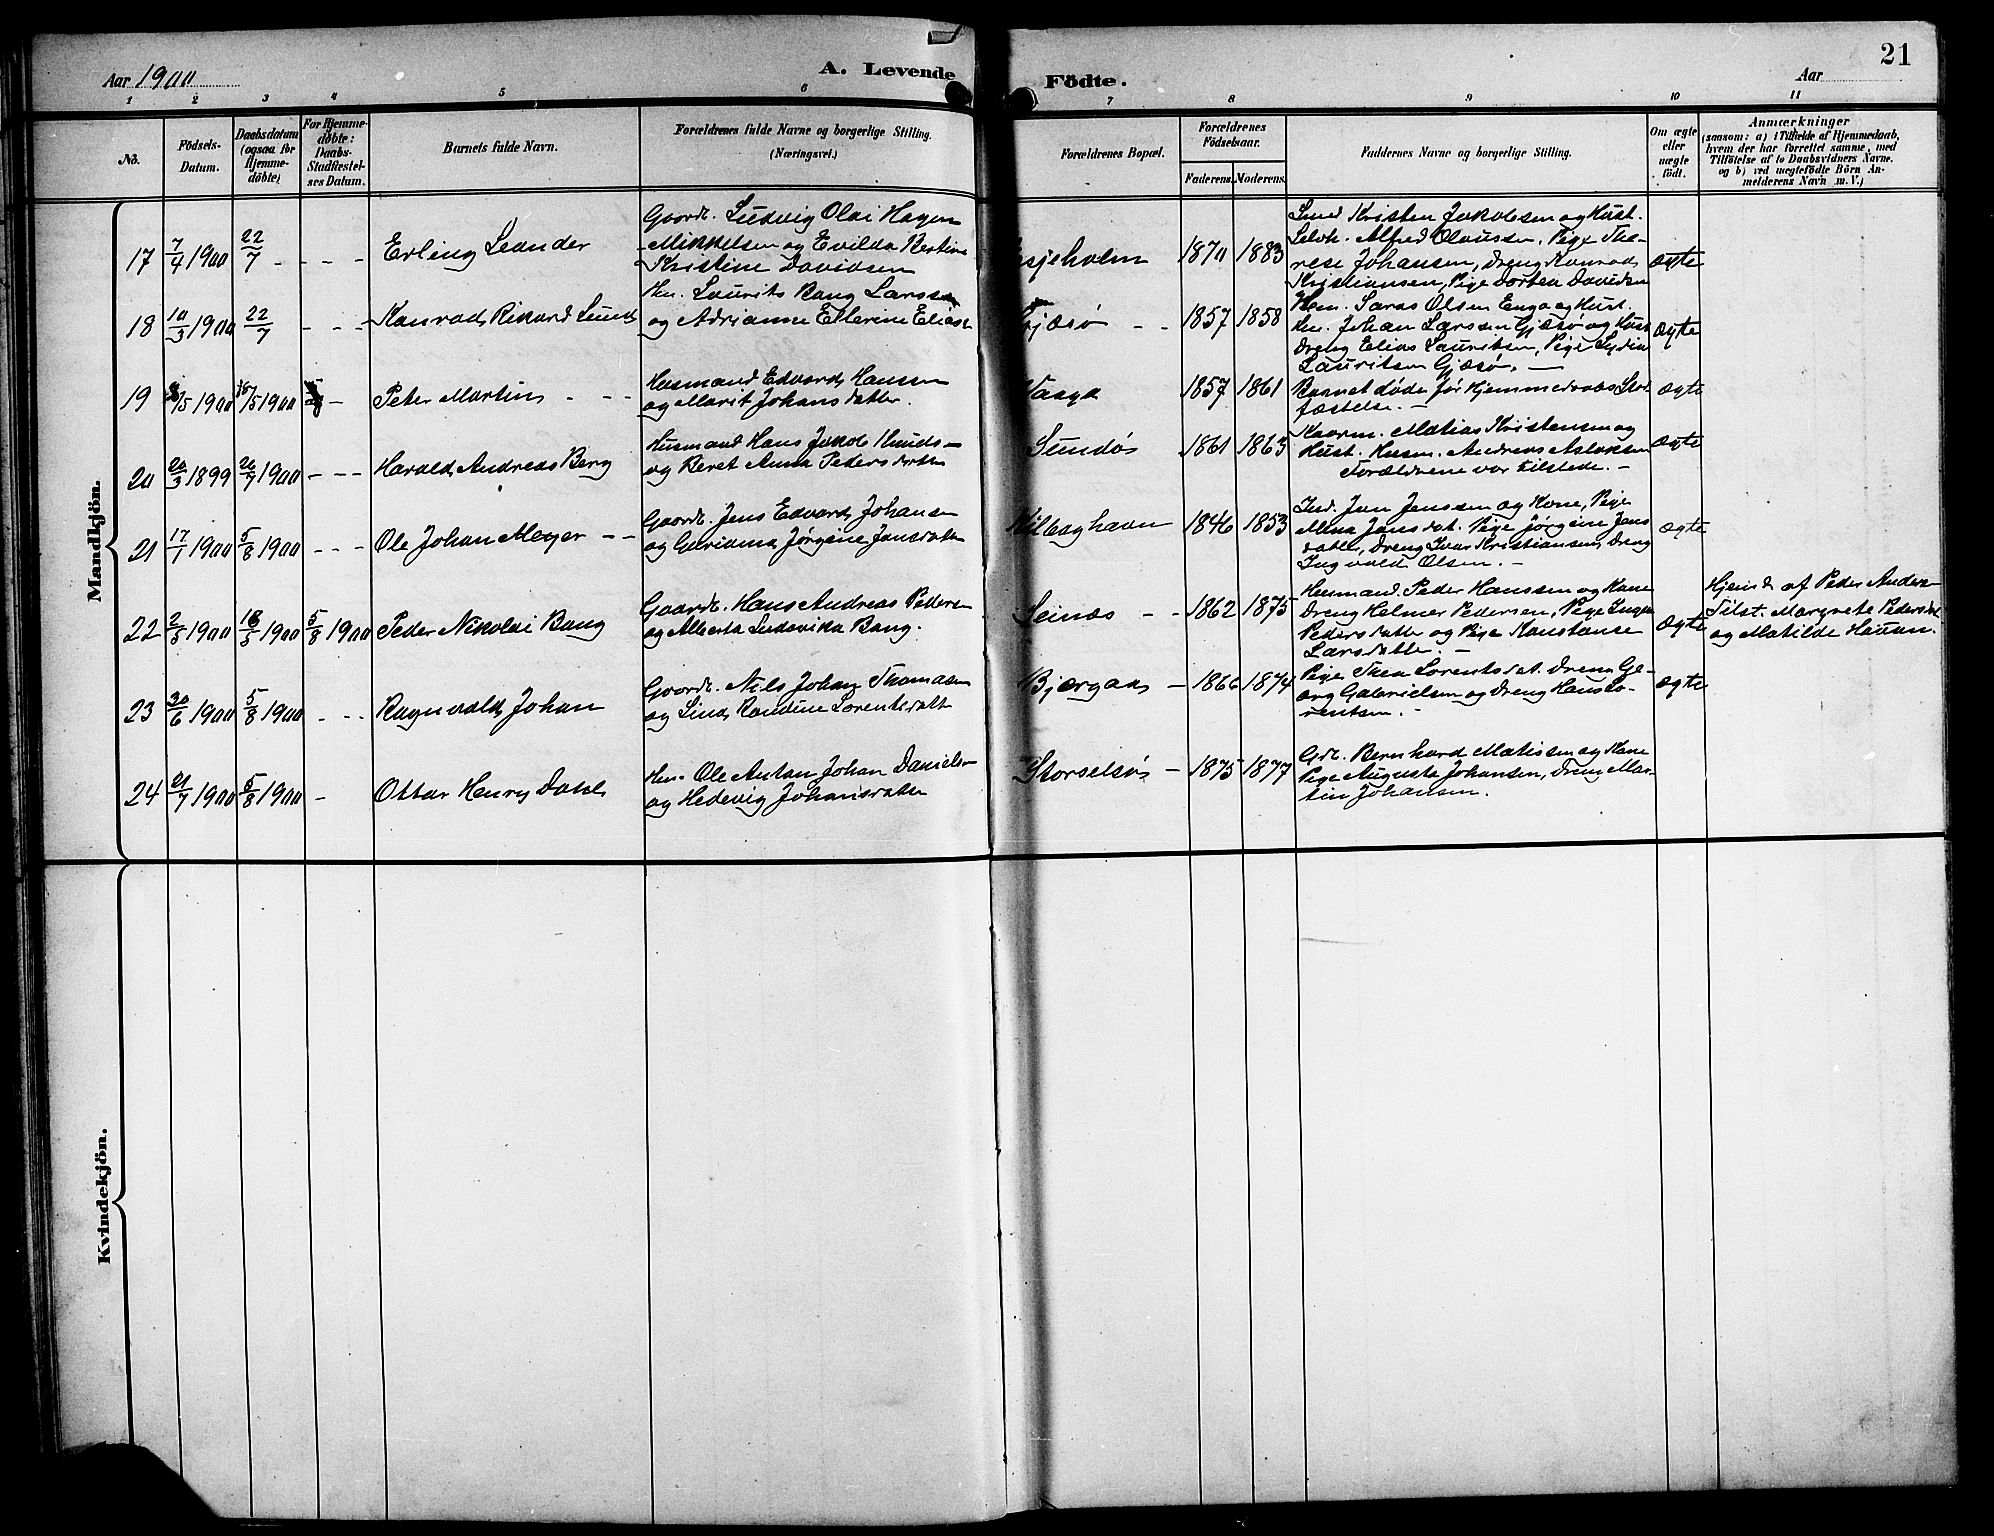 Aar 1900
A. Levende
Födte.
Aar
21
1 2 3 4 5 6 7 8 9 10 11
No.
Födsels-
Datum.
Daabsdatum
(ogsaa for
Hjemme-
döbte)
For Hjemme-
döbte:
Daabs-
Stadfæstel-
ses Datum.
Barnets fulde Navn.
Forældrenes fulde Navne og borgerlige Stilling.
(Næringsvei.)
Forældrenes Bopæl.
Forældrenes
Födselsaar.
Faderens. Moderens.
Faddernes Navne og borgerlige Stilling.
Om ægte
eller
uægte
födt.
Anmærkninger
(saasom: a) i Tilfælde af Hjemmedaab,
hvem der har forrettet samme, med
Tilföielse af to Daabsvidners Navne.
og b) ved uægtefödte Börn An-
melderens Navn m. V.)
Mandkjön.
17 7/4 1900 22/7 - - - -
Erling Leander
Gaardb. Ludvig Olai Hagen
Mikkelsen og Evilda Bertine
Kristine Davidsen
1870 1883
Smed Kristen Jakobsen og Hust.
Selvh. Alfred Olaussen, Pige The-
rese Johansen, Dreng Konrad
Kristiansen, Pige Dortea Davidsen
ægte
18 10/3 1900 22/7 - - -
Konrad Rikard Lund
Hm. Laurits Bang Larssen
og Adrianna Ellerine Eliasd
Gjæsø - -
1857 1858
Hm. Olsen Enga og Hust.
Hm. Johan Larssen Gjæsø og Hust
Dreng Elias Lauritsen, Pige Lydia
Lauritsen Gjæsø. -
ægte
19 /5 1900 /5 1900 -
Peter Martin - - -
Husmand Edvard Hansen
og Marit Johansdatter.
Vaaga
1857 1861
Barnet døde før Hjemmedaabs Stad
fæstelse. -
ægte
20 20/3 1899 26/7 1900 - - -
Harald Andreas Berg
Husmand Hans Jakob Knuds-
og Beret Anna Pedersdatter
Sundøs
1861 1863
Kaarm. Matias Kristensen og
Hust. Husm. Andreas Aslaksen
Forældrene var tilstede. -
ægte
21 17/7 1900 5/8 1900 - - -
Ole Johan Meyer - -
Gaardb. Jens Edvard Johansen
og Jørgine Jansdatter
Kilboghavn
1846 1853
Ind. Jan Jenssen og Kone, Pige
Mina Jansdat. Pige Jørgine Jans
datter, Dreng Ivar Kristiansen, Dreng
Ingvald Olsen. -
ægte
22 2/5 1900 16/5 1900 5/8 1900
Peder Nikolai Bang
Gaardb. Hans Andreas Peders-
og Alberta Ludovika Bang.
Seinæs - -
1862 1875
Husmand. Peder Hanssen og Kone
Dreng Helmer Pedersen, Pige Inga
Pedersdatter og Pige Konstanse
Larsdatter. -
ægte
Hjemd. af Peder Anders-
Tilst. Margrete Pedersdat
og Matilde Hauan.
23 30/6 1900 5/8 1900 - - -
Ragnvald Johan
Gaardb. Nils Johan Thomasen
og Lina Randine Lorentsdatt
Bjærgaas -
1866 1874
Pige Thea Lorentsdat. Dreng Ge-
org Gabrielsen og Dreng Hans Lo-
rentsen. -
ægte
24 21/7 1900 5/8 1900 -
Ottar Henry Dahl
Hm. Ole Antan Johan Daniels-
og Hedevig Johansdatter
Storselsøs -
1875 1877
Grb. Bernhard Matissen og Kone
Pige Augusta Johansen, Dreng Mar-
tin Johansen.
Kvindekjön.